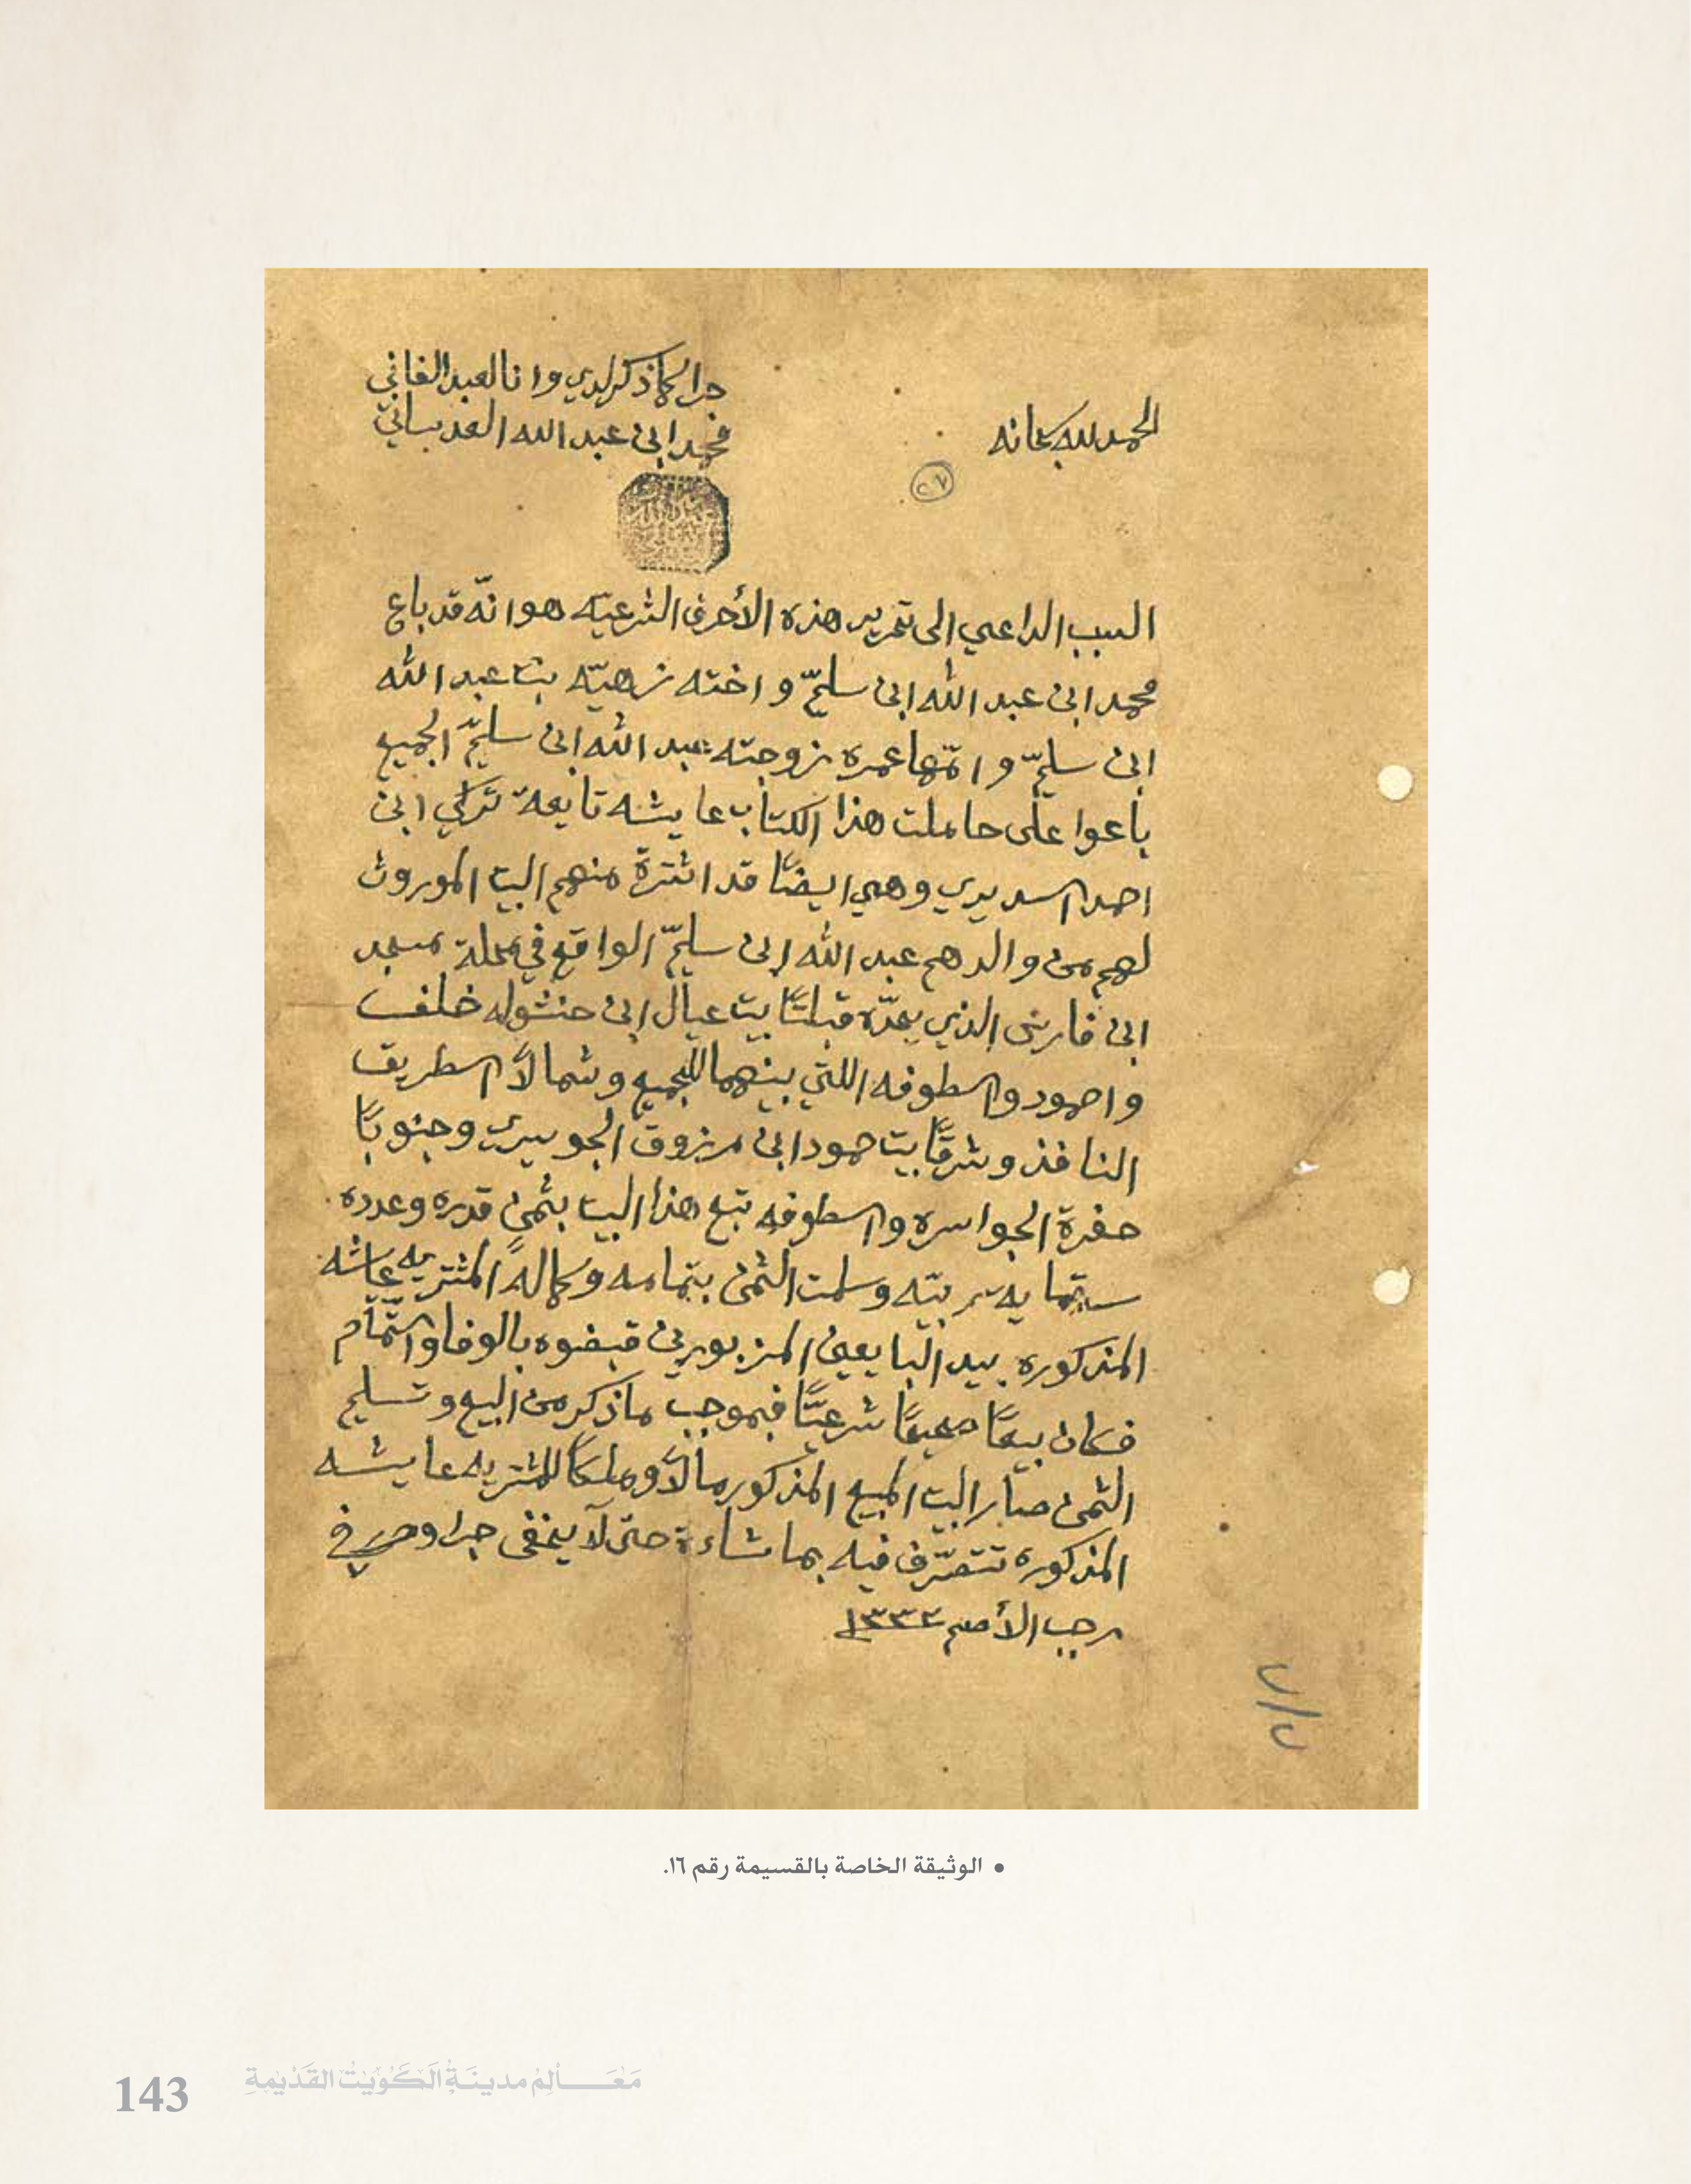 الحمد لله سبحانه
جرا كما ذكر لدي وانا العبد الفاني
محمد ابن عبد الله العدساني
٢٧
السبب الداعي الى تحرير هذه الأحرف الشرعيّه هو انّه قد باع
محمد ابن عبد الله ابن سليّم و اخته زهيّه بنت عبد الله
ابن سليّم و امّها عمره زوجته عبد الله ابن سليّم الجميع
باعوا على حاملت هذا الكتاب عايشه تابعة تركي ابن
احمد السديري وهي ايضًا قد اشترة منهم البيت الموروث
لهم من والدهم عبد الله ابن سليّم الواقع في محلة مسجد
ابن فارس الذي يحدّه قبلتًا بيت عيال ابن حنشوله خلف
و احمود والسطوفه اللتي بينهما للجميع وشمالاً السطريق
النافذ وشرقًا بيت حمود ابن مرزوق الجويسري وجنوبًا
حفرة الجواسره والسطوفه تبع هذا البيت بثمن قدره وعدده
ستماية وسلمت الثمن بتمامه وكماله المشتريه عاشه
المذكوره بيد البايعين المزبورين قبضوه بالوفا والتّمام
فكان بيعًا صحيحًا شرعيًّا فبموجب ما ذكر من البيع وتسليم
الثمن صار البيت المبيع المذكور مالاً وملكًا للمشتريه عايشه
المذكوره تتصرّف فيه بما شاءة حتى لا يخفى جرا وحرر في
رجب الأصم ١٣٣٢
• الوثيقة الخاصة بالقسيمة رقم ١٦.
مَعَـالِمْ مدينَةُ الكُوَيتْ القَدْيمةِ
143